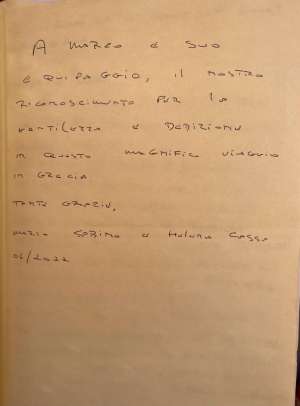 A MARCO E SUO
EQUIPAGGIO, IL NOSTRO
RICONOSCIMENTO PER LA
GENTILEZZA E DEDIZIONE
IN QUESTO MAGNIFICO VIAGGIO
IN GRECIA
TANTE GRAZIE,
MARIO SABINO E
06/2022